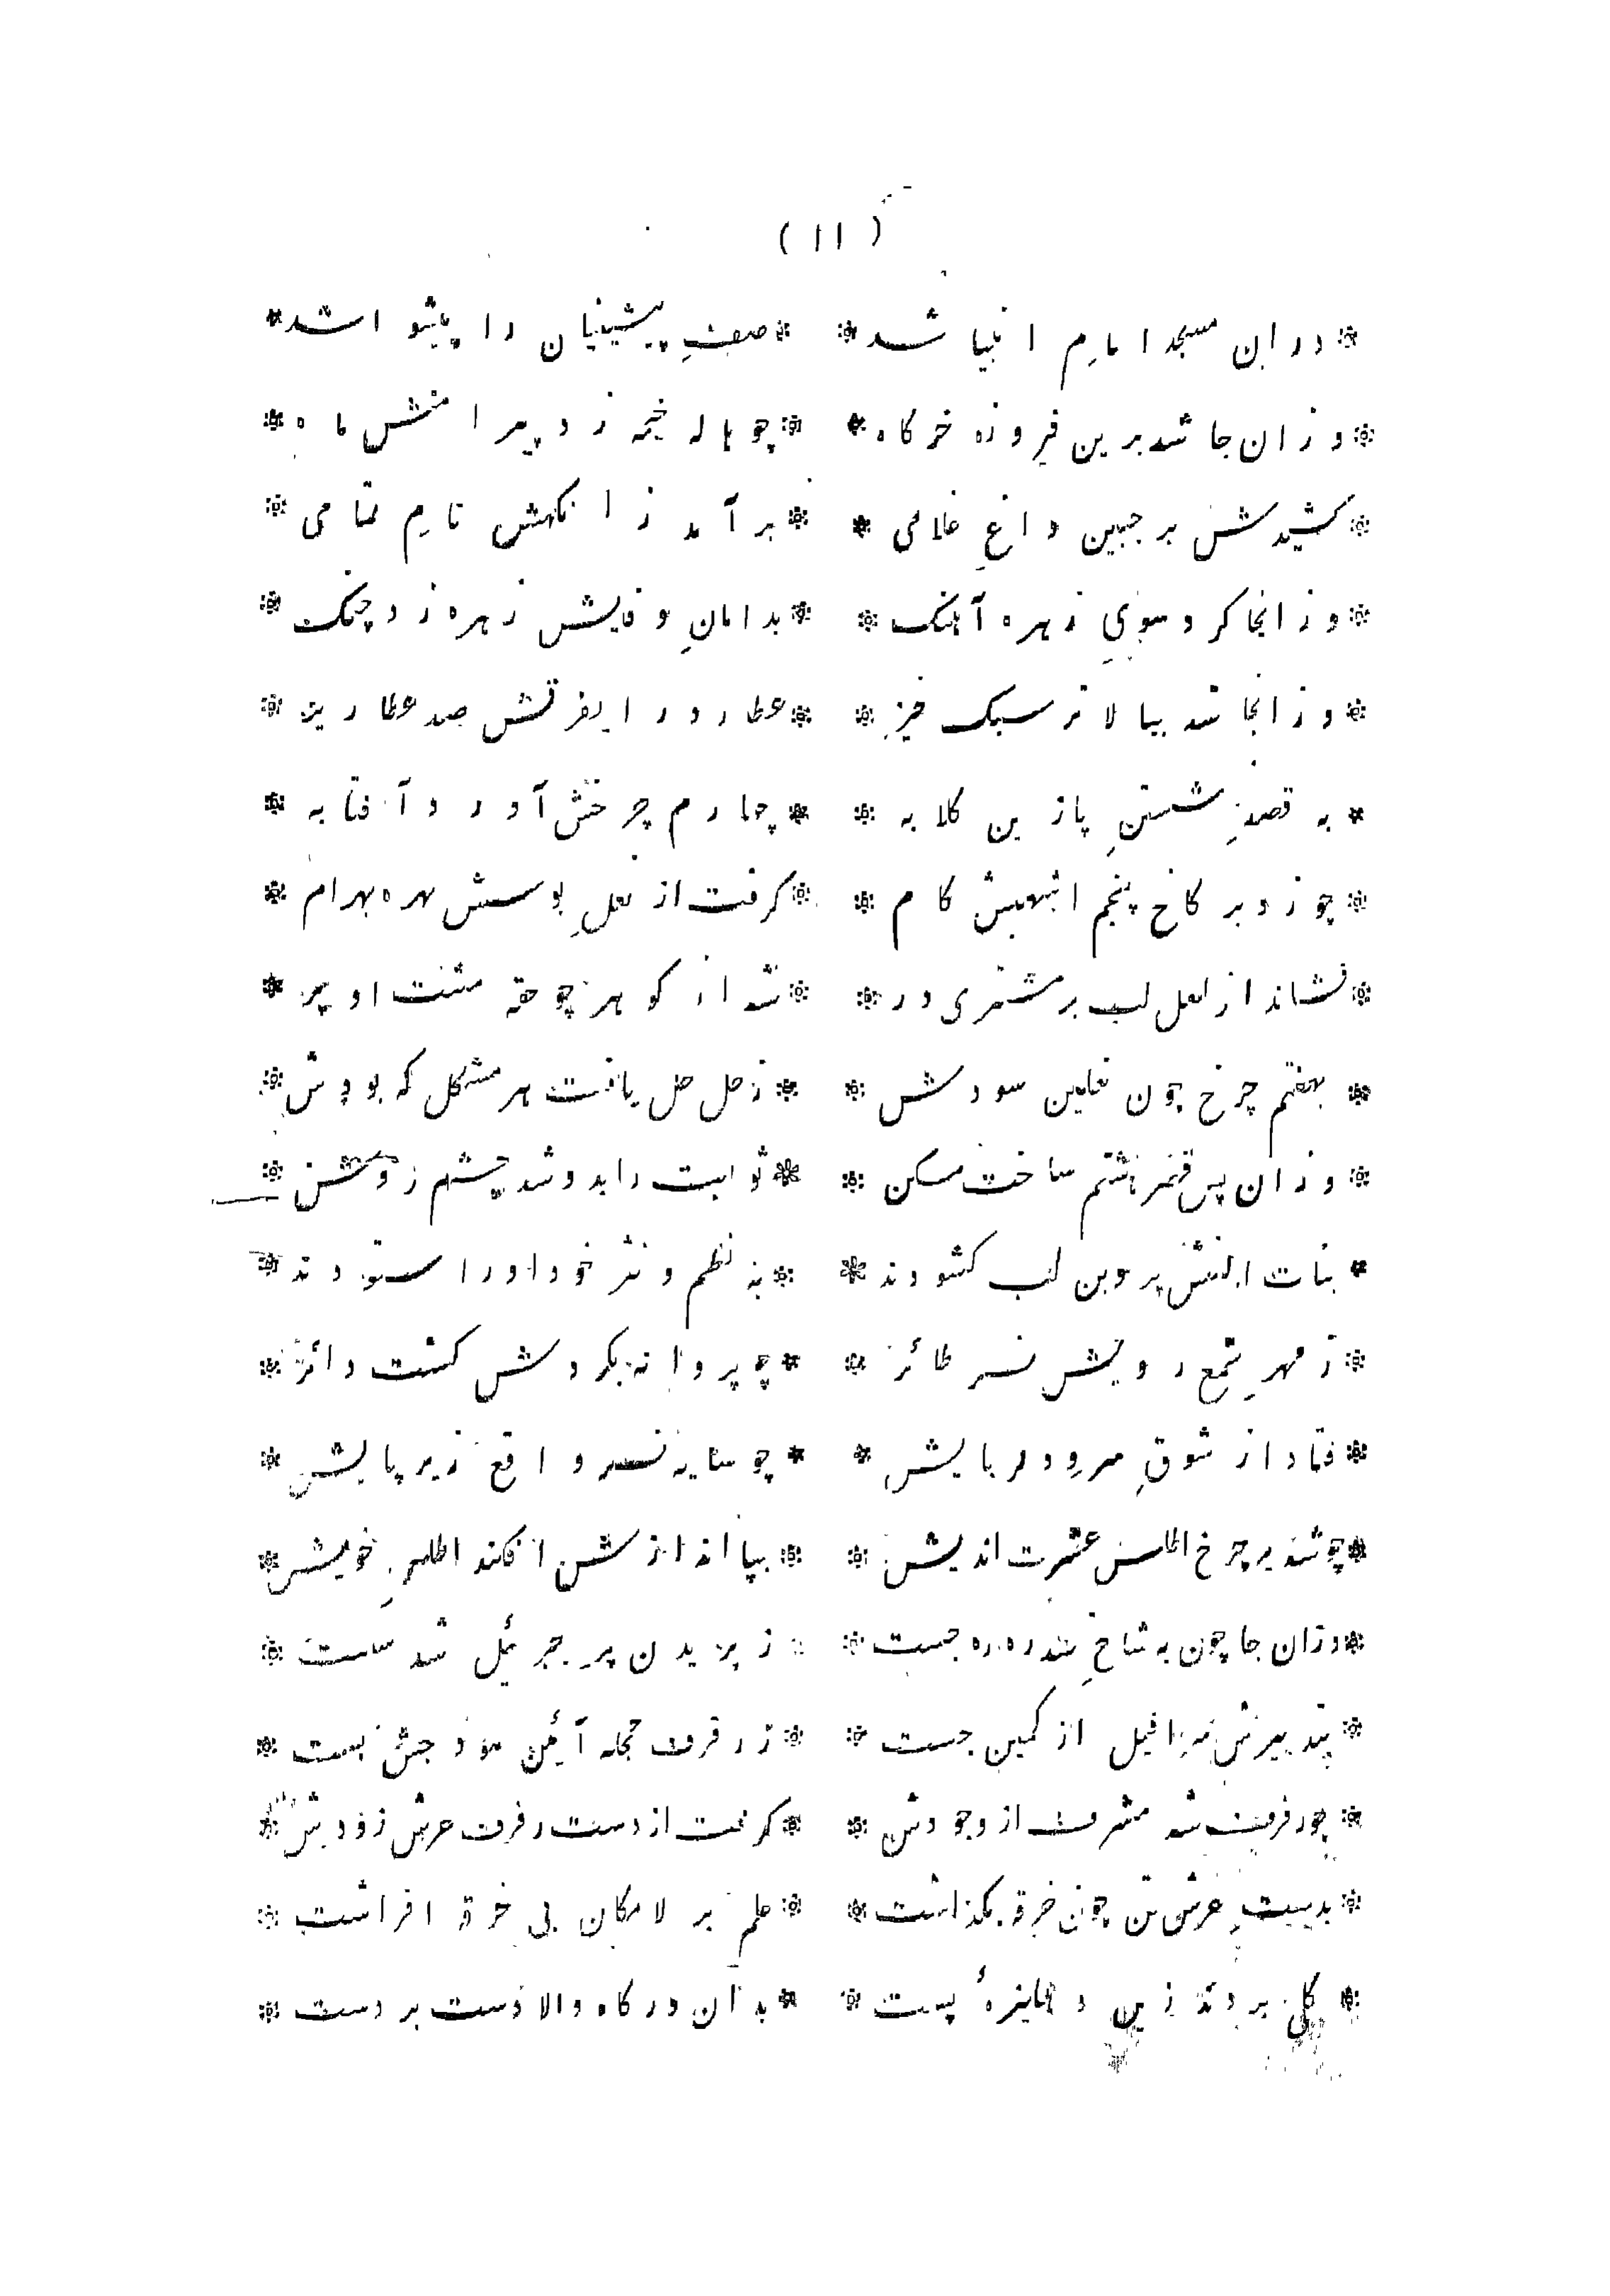 ( ۱۱ )
* دران مسجد امام انبیا شد * * صف پیشینیان را پیشوا شد *
* وزان جا شد برین فیروزه خرگاه * * چو هاله خیمه زد پیرامنش ماه *
* کشیدش بر جبین داغ غلامی * * بر آمد زانکهش نام تمامی *
* وز انجا کرد سوی زهره آهنگ * * بدامان وفایش زهره زد چنگ *
* وز انجا شد ببالا تر سبک خیز * * عطارد را بفرقش صد عطا ریز *
* به قصد شستن پا زین کلابه * * چهارم چرخش آورد آفتابه *
* چو زد بر کاخ پنجم اشهبش کام * * کرفت از نعل بوسش بهره بهرام *
* فشاند از لعل لب بر مشتری در * * شد از کوهر چو حقه مشت او پر *
* بهفتم چرخ چون نعلین سودش * * زحل حل یافت هر مشکل که بودش *
* وزان پس قصر هشتم ساخت مسکن * * ثوابت را بدو شد چشم روشن *
* بنات النعش پروین لب کشودند * * به نظم و نثر خود او را ستودند *
* ز مهر شمع رویش نسر طائر * * چو پروانه بکردش کشت دائر *
* فتاد از شوق سرو دلربایش * * چو سایه نسر واقع زیر پایش *
* چو شد بر چرخ اطلس عشرت اندیش * * بپا اندازش افکند اطلس خویش *
* وزان جا چون به شاخ سدره ره جست * * ز پریدن پر جبرئیل شد سست *
* بتدبیرش سرافیل از کمین جست * * ز رفرف حجله آئین هودجش بست *
* چو رفرف شد مشرف از وجودش * * کرفت از دست رفرف عرش زودش *
* بدست عرش تن چون خرقه بکذاشت * * علم بر لامکان بی خرقه افراشت *
* کلی بردند زین دهلیزهٔ پست * * بدان درکاه والا دست بر دست *